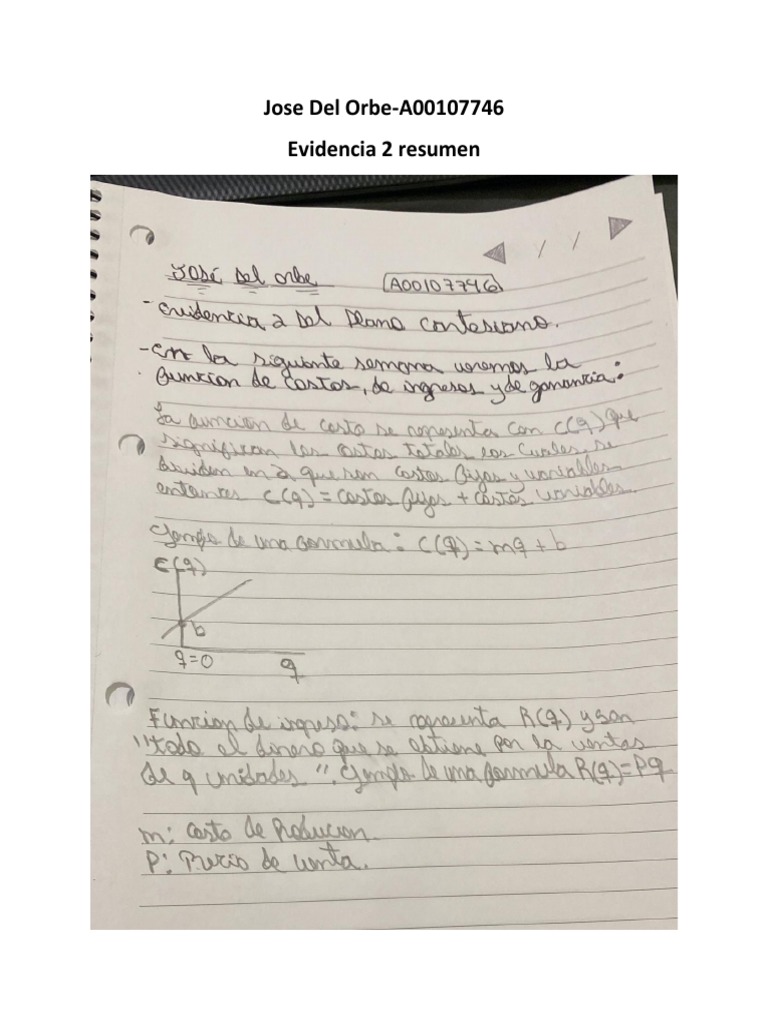 Jose Del Orbe-A00107746
Evidencia 2 resumen
José Del Orbe A00107746
- Evidencia 2 Del Plano Cartesiano.
- En la siguiente semana veremos la
funcion de costos, de ingresos y de ganancia:
La funcion de costo se representa con C(q) que
significan los costos totales los cuales se
dividen en 2 que son costos fijos y variables
entonces C(q) = costos fijos + costos variables.
Ejemplo de una formula: C(q) = mq + b
C(q)
b
q=0 q
Funcion de ingreso: se representa R(q) y son
"todo el dinero que se obtiene por la ventas
de q unidades". Ejemplo de una formula R(q)=Pq
m: Costo de Producion.
P: Precio de venta.